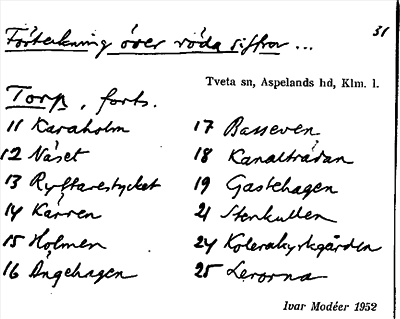 31
Förteckning över röda siffror ...
Tveta sn, Aspelands hd, Klm. l.
Torp, forts.
11 Karaholm
12 Näset
13 Ryttarestycket
14 Kärren
15 Holmen
16 Ängehagen
17 Basseven
18 Kanaltrådan
19 Gastehagen
21 Stenkullen
24 Kolerakyrkgården
25 Lerorna
Ivar Modéer 1952